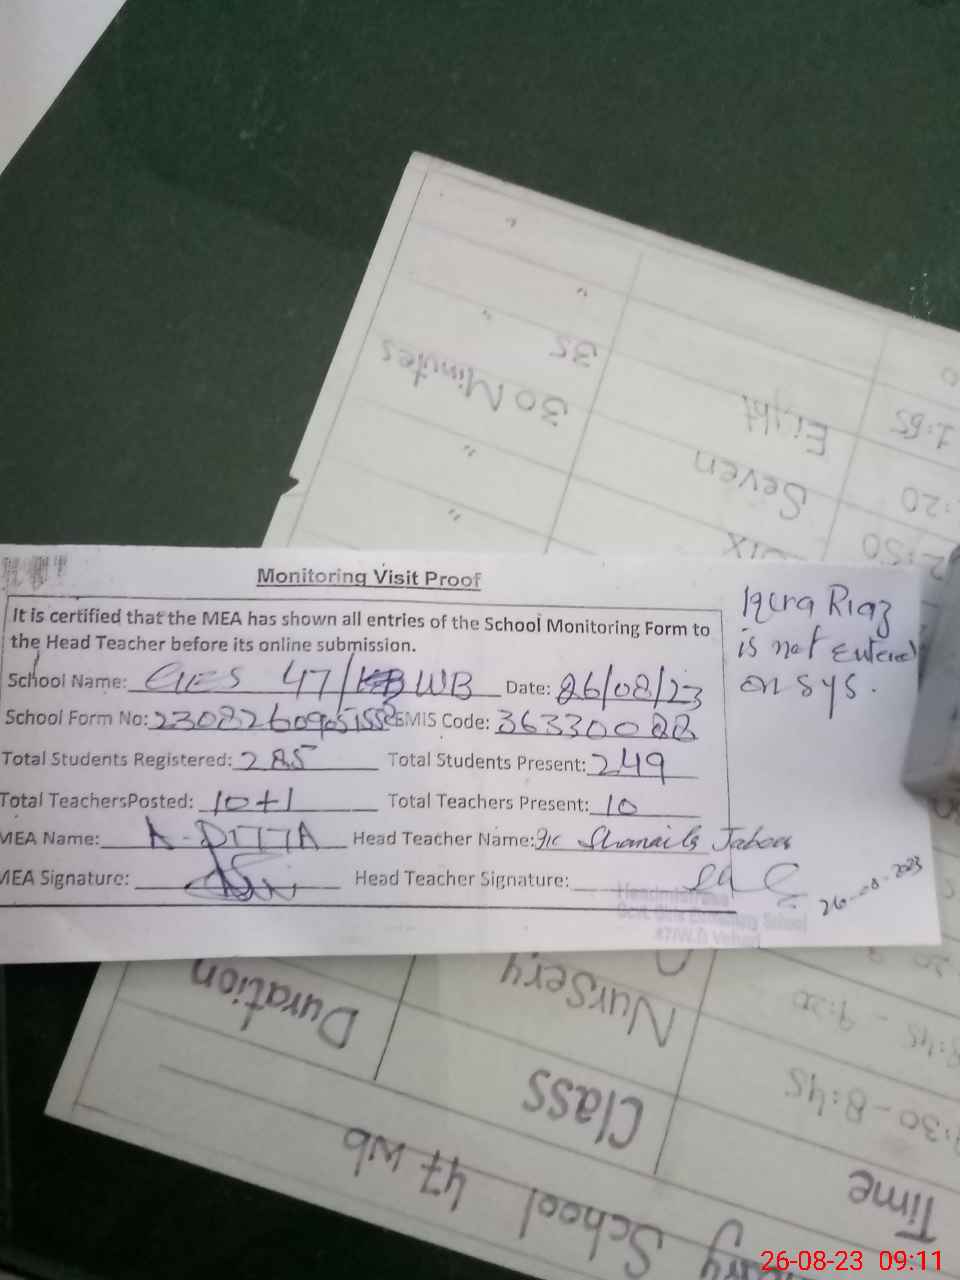 Monitoring Visit Proof
It is certified that the MEA has shown all entries of the School Monitoring Form to
the Head Teacher before its online submission.
School Name: GES 47/WB Date: 26/08/23
School Form No: EMIS Code: 36330088
Total Students Registered: 285 Total Students Present: 249
Total TeachersPosted: 10+1 Total Teachers Present: 10
MEA Name: A-DITTA Head Teacher Name: I/c
MEA Signature: Head Teacher Signature:
26-08-2023
Iqra Riaz
is not entered
on sys.
School 47 Wb
Time Class Duration
:30-8:45 Nursery
8:45 - 9:20
2:50 Six "
:20 Seven "
1:55 Eight 30 Minutes
35 "
"
"
26-08-23 09:11